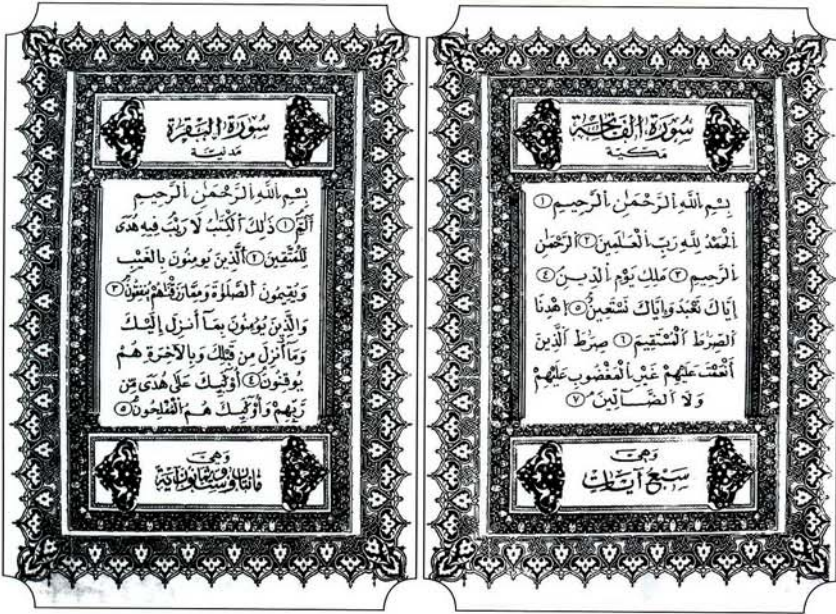 سورة الفاتحة
مكية
بِسْمِ ٱللَّهِ ٱلرَّحْمَٰنِ ٱلرَّحِيمِ ١
ٱلْحَمْدُ لِلَّهِ رَبِّ ٱلْعَٰلَمِينَ ٢ ٱلرَّحْمَٰنِ
ٱلرَّحِيمِ ٣ مَٰلِكِ يَوْمِ ٱلدِّينِ ٤
إِيَّاكَ نَعْبُدُ وَإِيَّاكَ نَسْتَعِينُ ٥ ٱهْدِنَا
ٱلصِّرَٰطَ ٱلْمُسْتَقِيمَ ٦ صِرَٰطَ ٱلَّذِينَ
أَنْعَمْتَ عَلَيْهِمْ غَيْرِ ٱلْمَغْضُوبِ عَلَيْهِمْ
وَلَا ٱلضَّآلِّينَ ٧
وهي
سبع آيات
سورة البقرة
مدنية
بِسْمِ ٱللَّهِ ٱلرَّحْمَٰنِ ٱلرَّحِيمِ
الٓمٓ ١ ذَٰلِكَ ٱلْكِتَٰبُ لَا رَيْبَ فِيهِ هُدًى
لِّلْمُتَّقِينَ ٢ ٱلَّذِينَ يُؤْمِنُونَ بِالْغَيْبِ
وَيُقِيمُونَ ٱلصَّلَوٰةَ وَمِمَّا رَزَقْنَٰهُمْ يُنفِقُونَ ٣
وَالَّذِينَ يُؤْمِنُونَ بِمَآ أُنزِلَ إِلَيْكَ
وَمَآ أُنزِلَ مِن قَبْلِكَ وَبِالْآخِرَةِ هُمْ
يُوقِنُونَ ٤ أُوْلَٰٓئِكَ عَلَىٰ هُدًى مِّن
رَّبِّهِمْ وَأُوْلَٰٓئِكَ هُمُ ٱلْمُفْلِحُونَ ٥
وهي